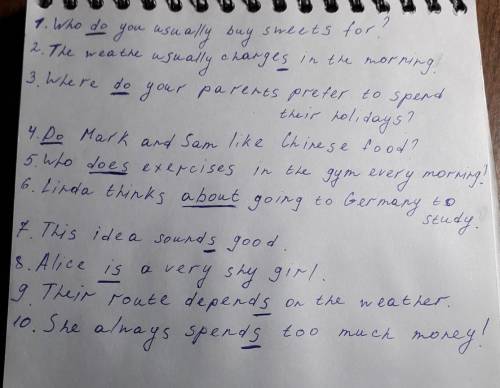 1. Who do you usually buy sweets for?
2. The weathe usually changes in the morning.
3. Where do your parents prefer to spend
their holidays?
4. Do Mark and Sam like Chinese food?
5. Who does exercises in the gym every morning?
6. Linda thinks about going to Germany to
study.
7. This idea sounds good.
8. Alice is a very shy girl.
9. Their route depends on the weather.
10. She always spends too much money!